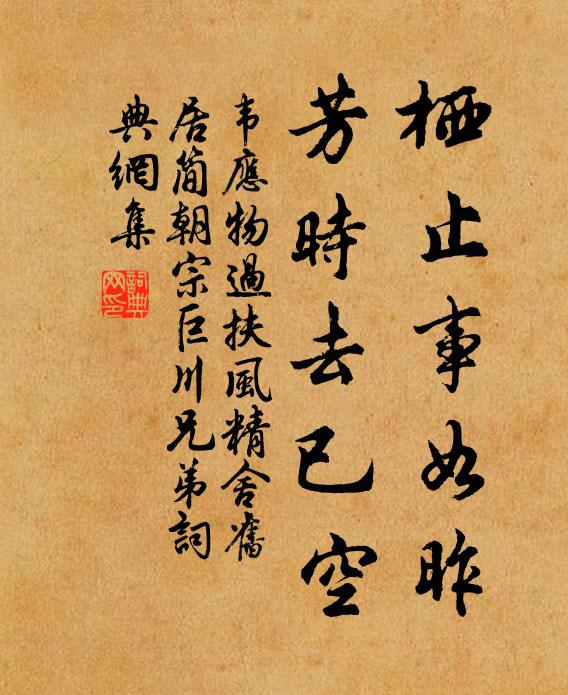 栖止事如昨
芳時去已空
韦應物過扶風精舍舊
居簡朝宗巨川兄弟詞
典網集
詞典网印